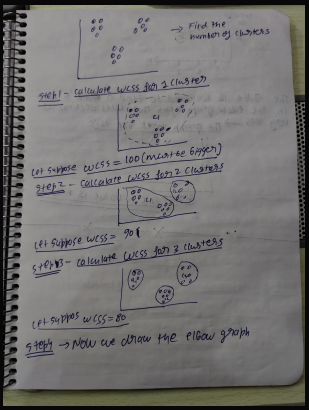 → Find the
number of clusters
Step1 - calculate WCSS for 1 cluster
C1
Let Suppose WCSS = 100 (must be bigger)
Step2 - calculate WCSS for 2 clusters
C1
Let suppose WCSS = 90
Step3 - calculate WCSS for 3 clusters
Let suppos WCSS = 80
Step4 → Now we draw the elbow graph